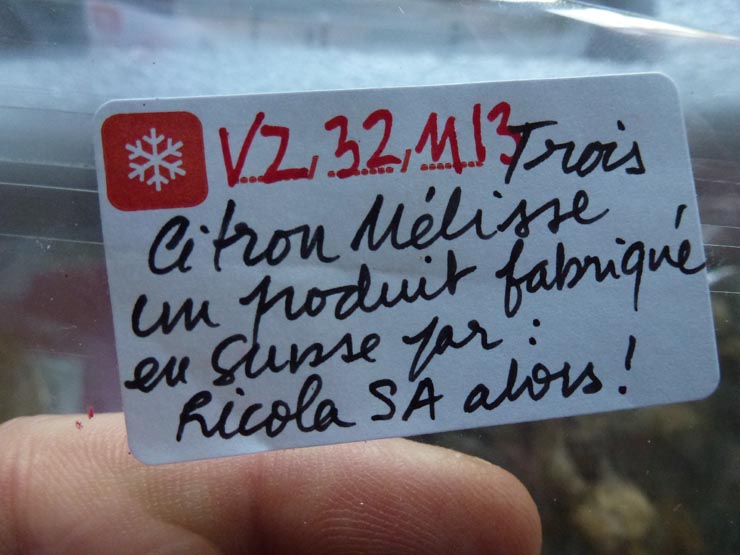 V2, 32, M13 Trois
Citron Mélisse
un produit fabriqué
en Suisse par :
Ricola SA alors !